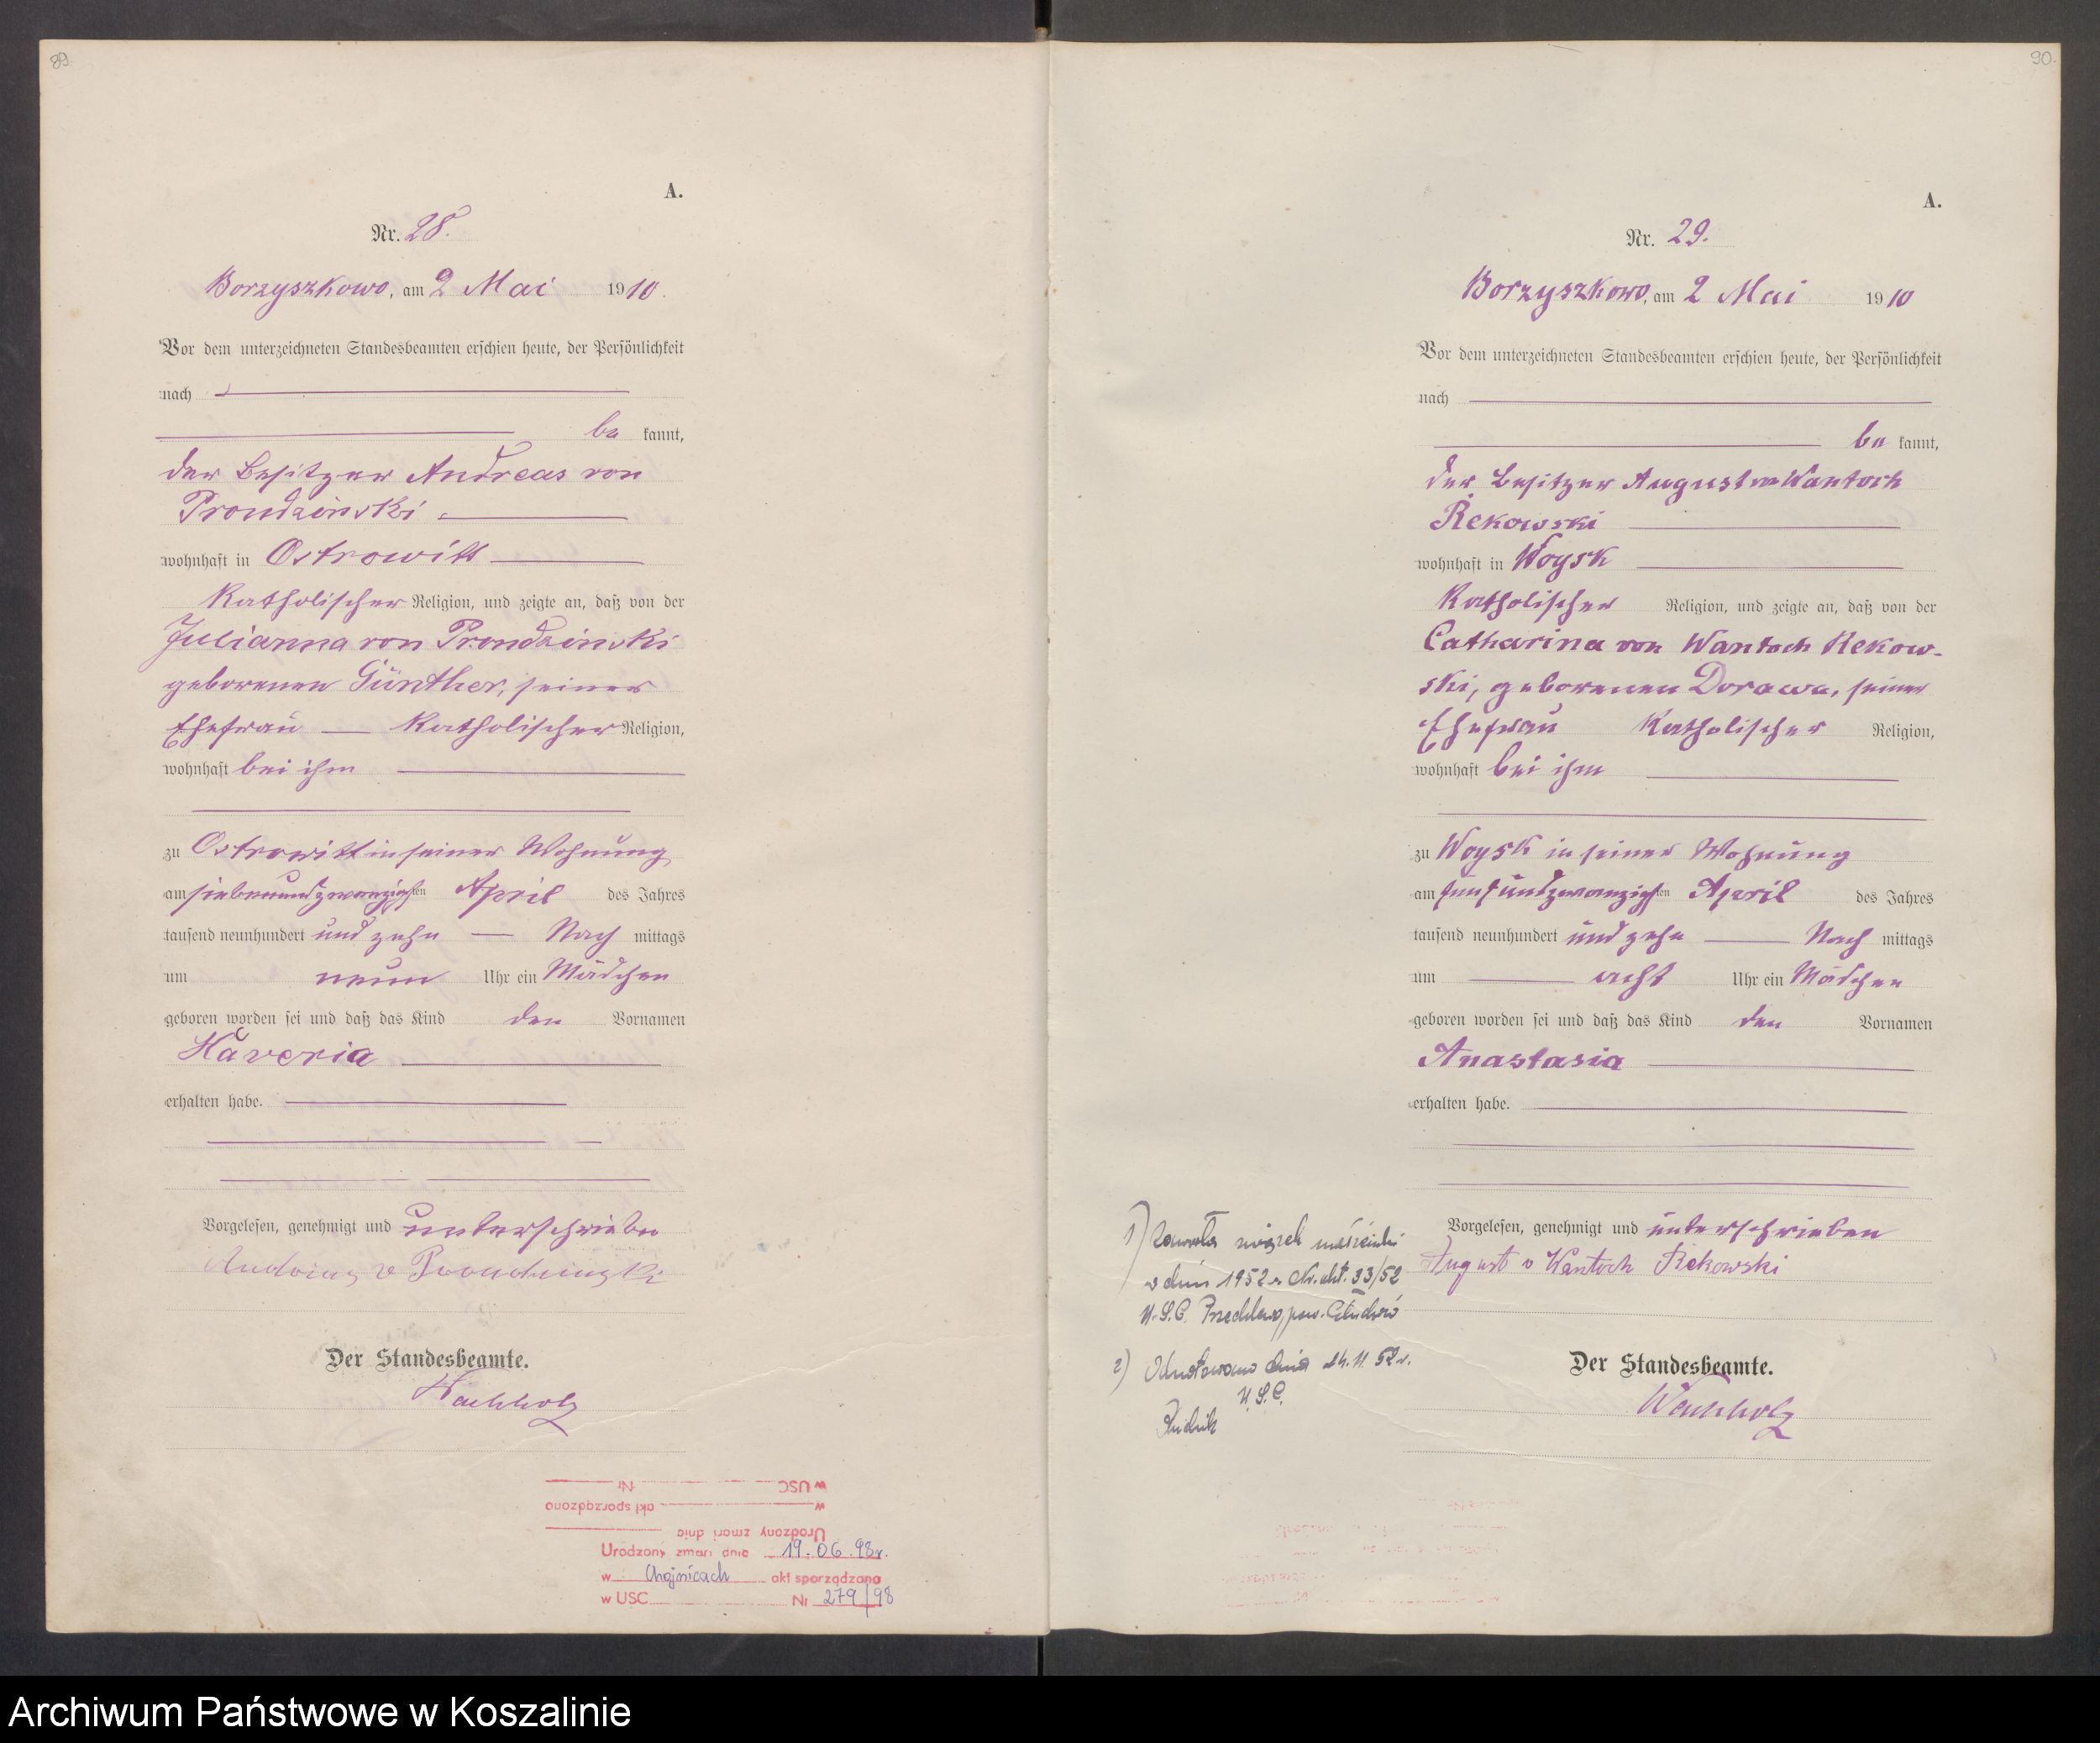 89
A.
Nr. 28.
Borzyszkowo, am 2 Mai 1910.
Vor dem unterzeichneten Standesbeamten erschien heute, der Persönlichkeit
nach
be kannt,
der Besitzer Andreas von
Prondzinski
wohnhaft in Ostrowitt
Katholischer Religion, und zeigte an, daß von der
Julianna von Prondzinski
geborenen Günther, seiner
Ehefrau — Katholischer Religion,
wohnhaft bei ihm
zu Ostrowitt in seiner Wohnung
am siebenundzwanzigsten April des Jahres
tausend neunhundert und zehn — Nach mittags
um neun Uhr ein Mädchen
geboren worden sei und daß das Kind den Vornamen
Xaveria
erhalten habe.
Vorgelesen, genehmigt und unterschrieben
v
Der Standesbeamte.
Wachholz
w USC Nr
w akt sporządzono
Urodzony zmarł dnia
Urodzony zmarł dnia 19.06.98r.
w Chojnicach akt sporządzono
w USC Nr 279/98
90.
A.
Nr. 29.
Borzyszkowo, am 2 Mai 1910
Vor dem unterzeichneten Standesbeamten erschien heute, der Persönlichkeit
nach
be kannt,
der Besitzer August von Wantoch
Rekowski
wohnhaft in Woysk
Katholischer Religion, und zeigte an, daß von der
Catharina von Wantoch Rekow-
ski, geborenen Dorawa, seiner
Ehefrau Katholischer Religion,
wohnhaft bei ihm
zu Woysk in seiner Wohnung
am fünfundzwanzigsten April des Jahres
tausend neunhundert und zehn — Nach mittags
um — acht Uhr ein Mädchen
geboren worden sei und daß das Kind den Vornamen
Anastasia
erhalten habe.
Vorgelesen, genehmigt und unterschrieben
August v Wantoch Rekowski
Der Standesbeamte.
Wachholz
1) Zawarła związek małżeński
w dniu 1952 r Nr. akt. 33/52
U.S.C. Przechlewo, pow. Człuchów
2) Odnotowano dnia 52 r.
U.S.C.
Archiwum Państwowe w Koszalinie